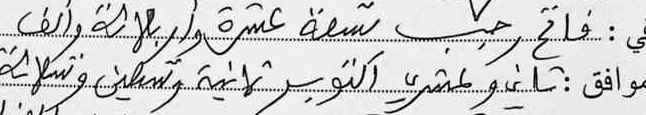 في : فاتح رجب تسعة عشرة وأربلائة وألف
موافق : ثاني وعشري اكتوبر ثمانية وتسعين وتسلائة